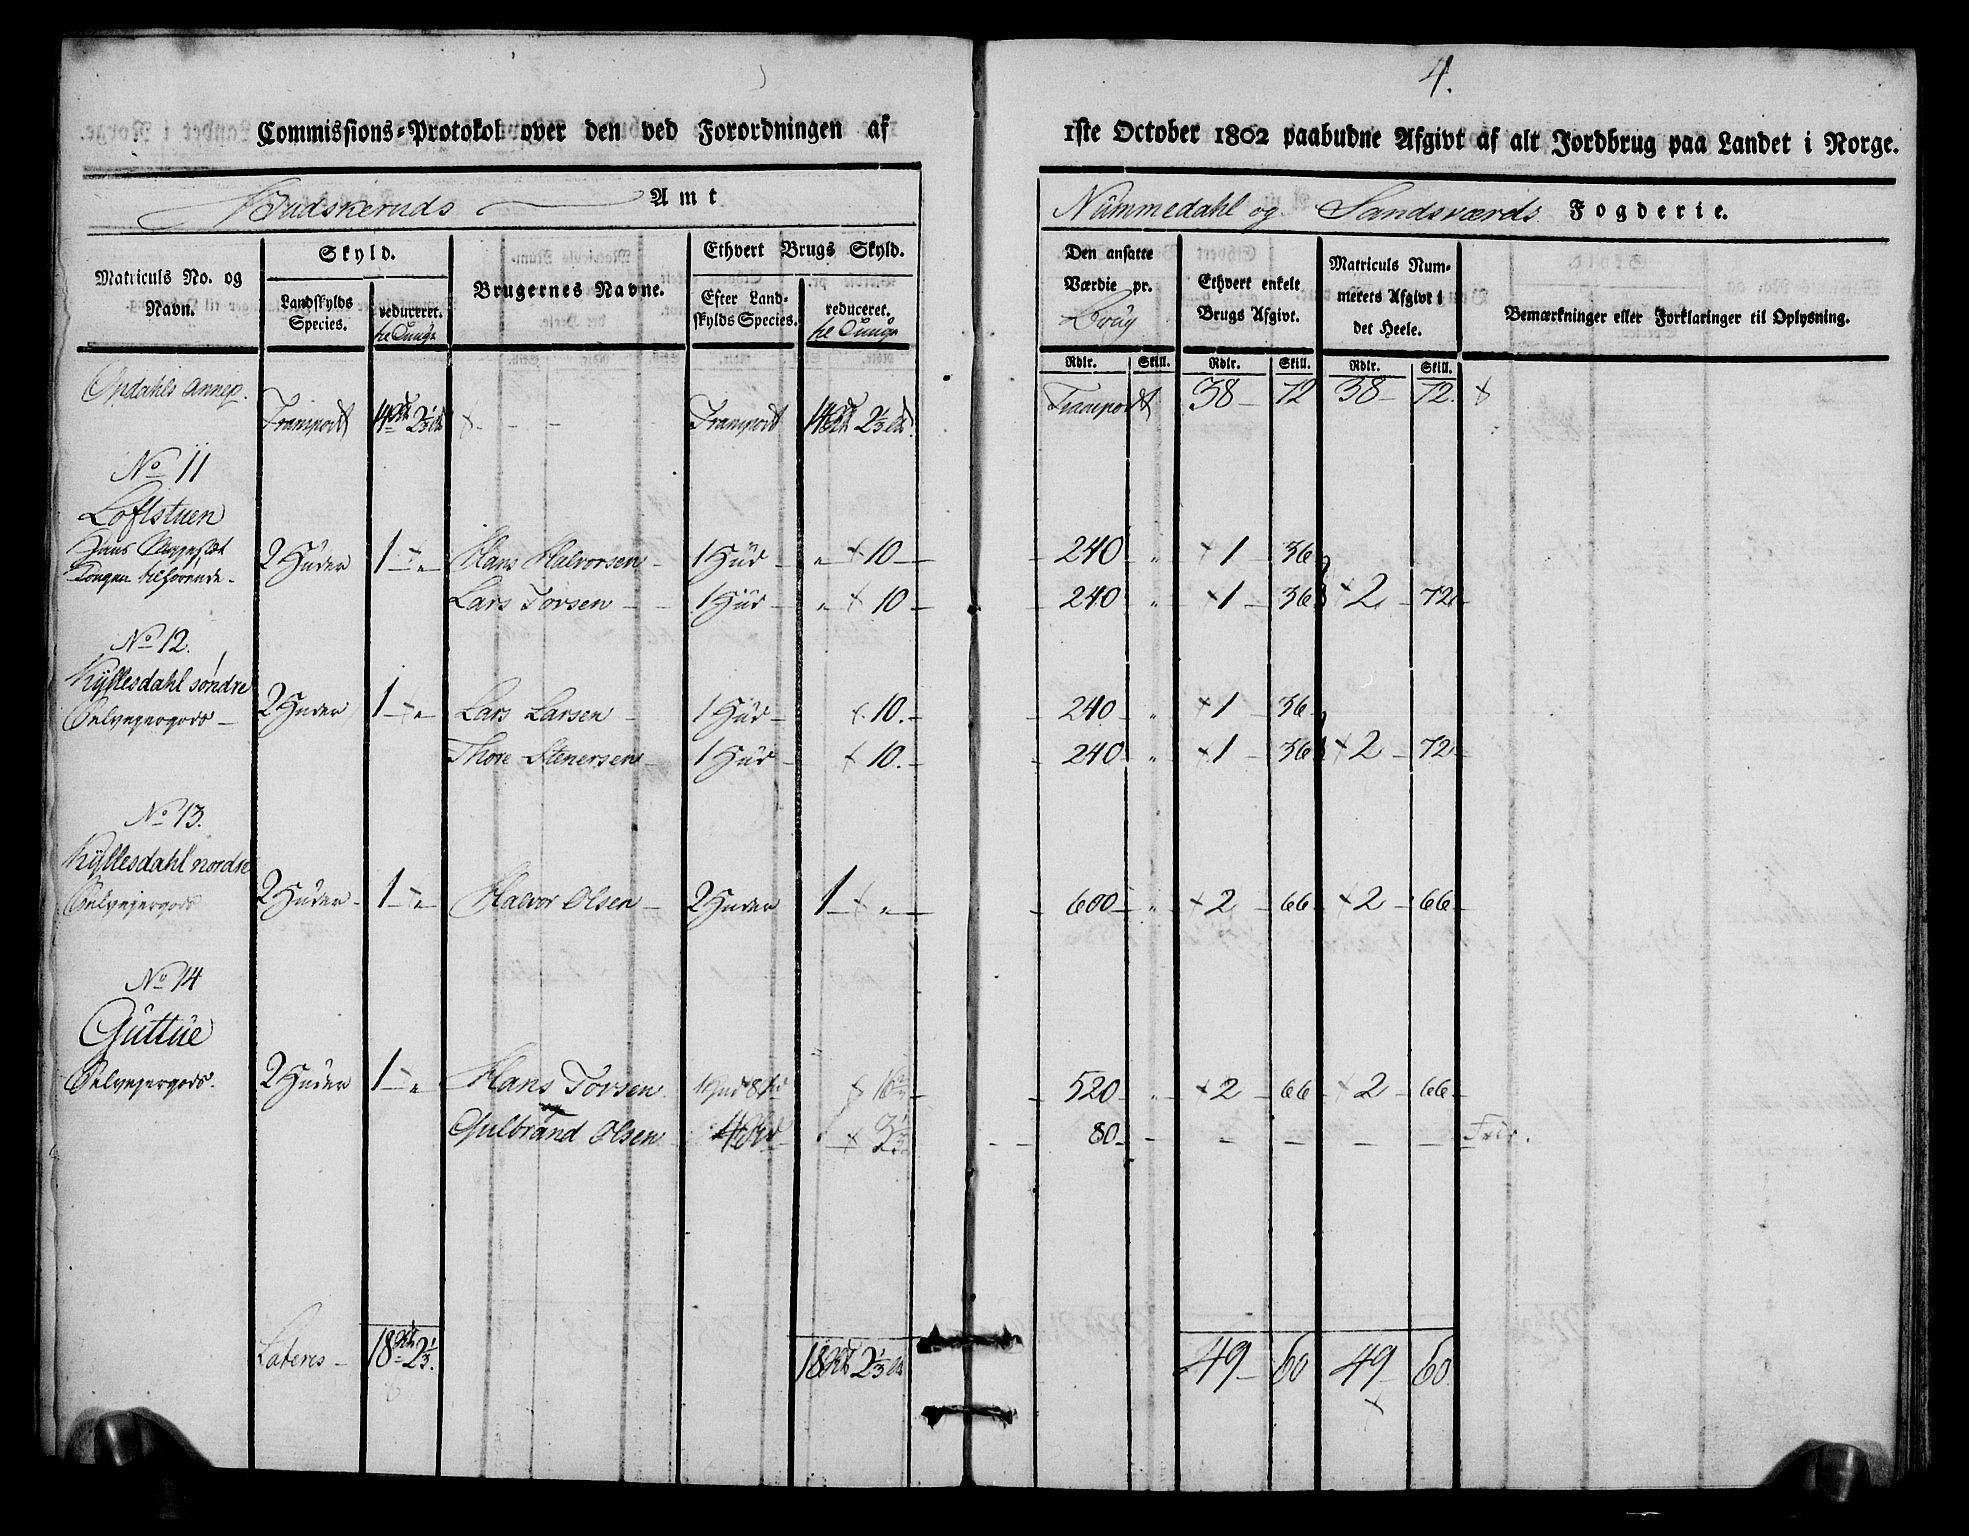 4.
Commissions=Protokol over den ved Forordningen af 1ste October 1802 paabudne Afgivt af alt Jordbrug paa Landet i Norge.
Budskeruds Amt
Nummedahl og Sandsværds Fogderie.
Matriculs No. og Navn.
Skyld.
Landskylds Species.
reduceret.
Brugernes Navne.
Ethvert Brugs Skyld.
Efter Landskylds Species.
reduceret.
Den ansatte Værdie pr. Brug
Ethvert enkelt Brugs Afgivt.
Matriculs Nummerets Afgivt i det Heele.
Bemærkninger eller Forklaringer til Oplysning.
Rdlr. Skill. Rdlr. Skill. Rdlr. Skill.
Opdahls Annex.
Transport Transport Transport 38 72 38 72.
No 11
Loftstuen
Hans Majestæt 2 Huder 1 „ Hans Halvorsen 1 Hud „ 10 240 „ 1 36
Kongen tilhørende Lars Torsen 1 Hud „ 10 240 „ 1 36 2 72
No 12.
Kyllesdahl søndre
Selvejergods 2 Huder 1 „ Lars Larsen 1 Hud 10. 240 „ 1 36
Thore Stenersen 1 Hud 10. 240 „ 1 36 2 72
No 13.
Kyllesdahl nordre
Selvejergods 2 Huder 1 „ Halvor Olsen 2 Huder 1 „ 600 „ 2 66 2 66
No 14
Guttue
Selvejergods. 2 Huder 1 „ Hans Torsen 1 Hud 8 16 2/3 520 „ 2 66 2 66
og
Gulbrand Olsen 4 3 1/3 80 Frie.
Lateres 18 2 1/3. 18 2 1/3 49 60 49 60